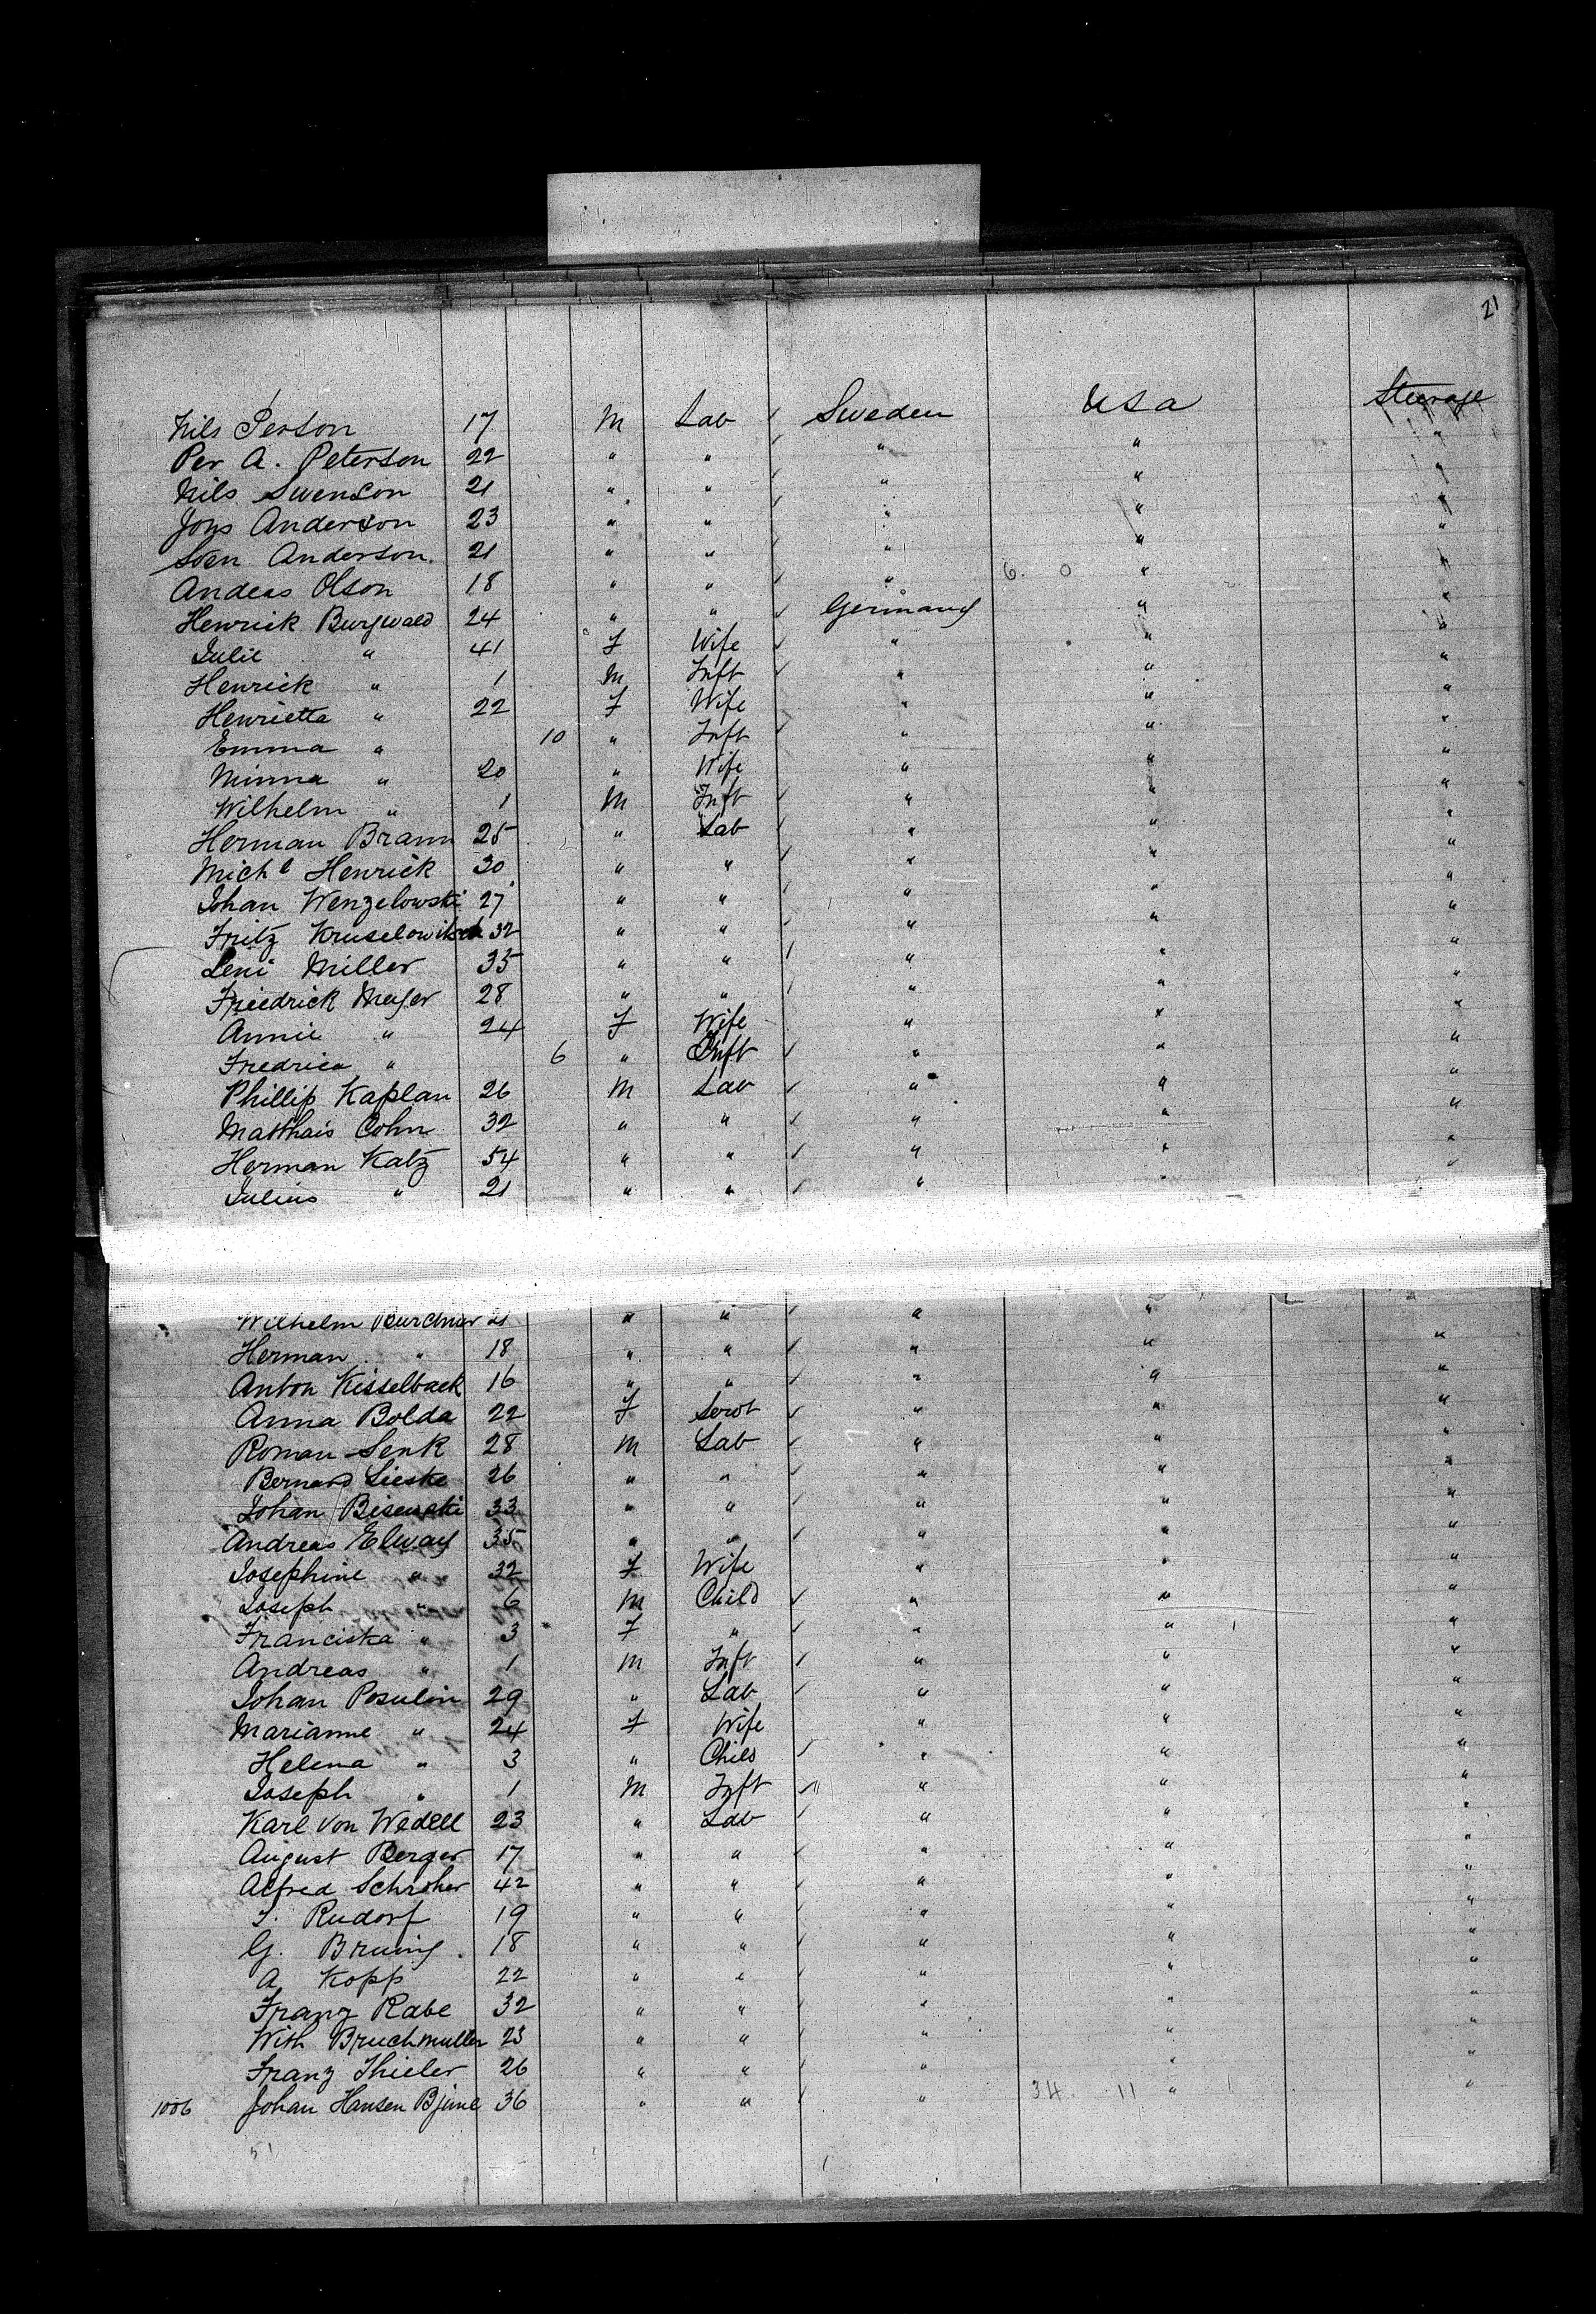 21
Nils Person 17 M Lab Sweden USA Steerage
Per A. Peterson 22 " " " " "
Nils Swenson 21 " " " " "
Jons Anderson 23 " " " " "
Sven Anderson. 21 " " " " "
Andeas Olson 18 " " " 6. 0 " "
Henrick Burgwald 24 " " Germany " "
Julie " 41 F Wife " " "
Henrick " 1 M Inft " " "
Henrietta " 22 F Wife " " "
Emma " 10 " Inft " " "
Minna " 20 " Wife " " "
Wilhelm " 1 M Inft " " "
Herman Bramn 25 " Lab " " "
Michl Henrick 30 " " " " "
Johan Wenzelowski 27 " " " " "
Fritz 32 " " " " "
Leni Miller 35 " " " " "
Friedrick Meyer 28 " " " " "
Annie " 24 F Wife " " "
Fredrica " 6 " Inft " " "
Phillip Kaplan 26 M Lab " " "
Matthais Cohn 32 " " " " "
Herman Katz 54 " " " " "
Julius " 21 " " " " "
Wilhelm 21 " " " " "
Herman " 18 " " " " "
Anton Kisselback 16 " " " " "
Anna Bolda 22 F Servt " " "
Roman Senk 28 M Lab " " "
Bernard Lieske 26 " " " " "
Johan 33 " " " " "
Andreas Elway 35 " " " " "
Josephine " 32 F Wife " " "
Joseph " 6 M Child " " "
Franciska " 3 F " " " "
Andreas " 1 M Inft " " "
Johan Posulin 29 " Lab " " "
Marianne " 24 F Wife " " "
Helena " 3 " Child " " "
Joseph " 1 M Inft " " "
Karl von Wedell 23 " Lab " " "
August Berger 17 " " " " "
Alfred Schroher 42 " " " " "
Rudorf 19 " " " " "
G. Bruing. 18 " " " " "
A Kopp 22 " " " " "
Franz Rabe 32 " " " " "
With Bruchmuller 23 " " " " "
Franz Thieler 26 " " " " "
1006 Johan Hansen Bjune 36 " " " 34. 11 " "
51